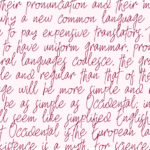 their pronunciation and their m
why a new common language
to pay expensive translators.
to have uniform grammar, pron
ral languages coalesce, the gr
le and regular than that of th
ge will be more simple and
be as simple as Occidental; in
ll seem like simplified English
t Occidental is. The European la
existence is a myth. For science